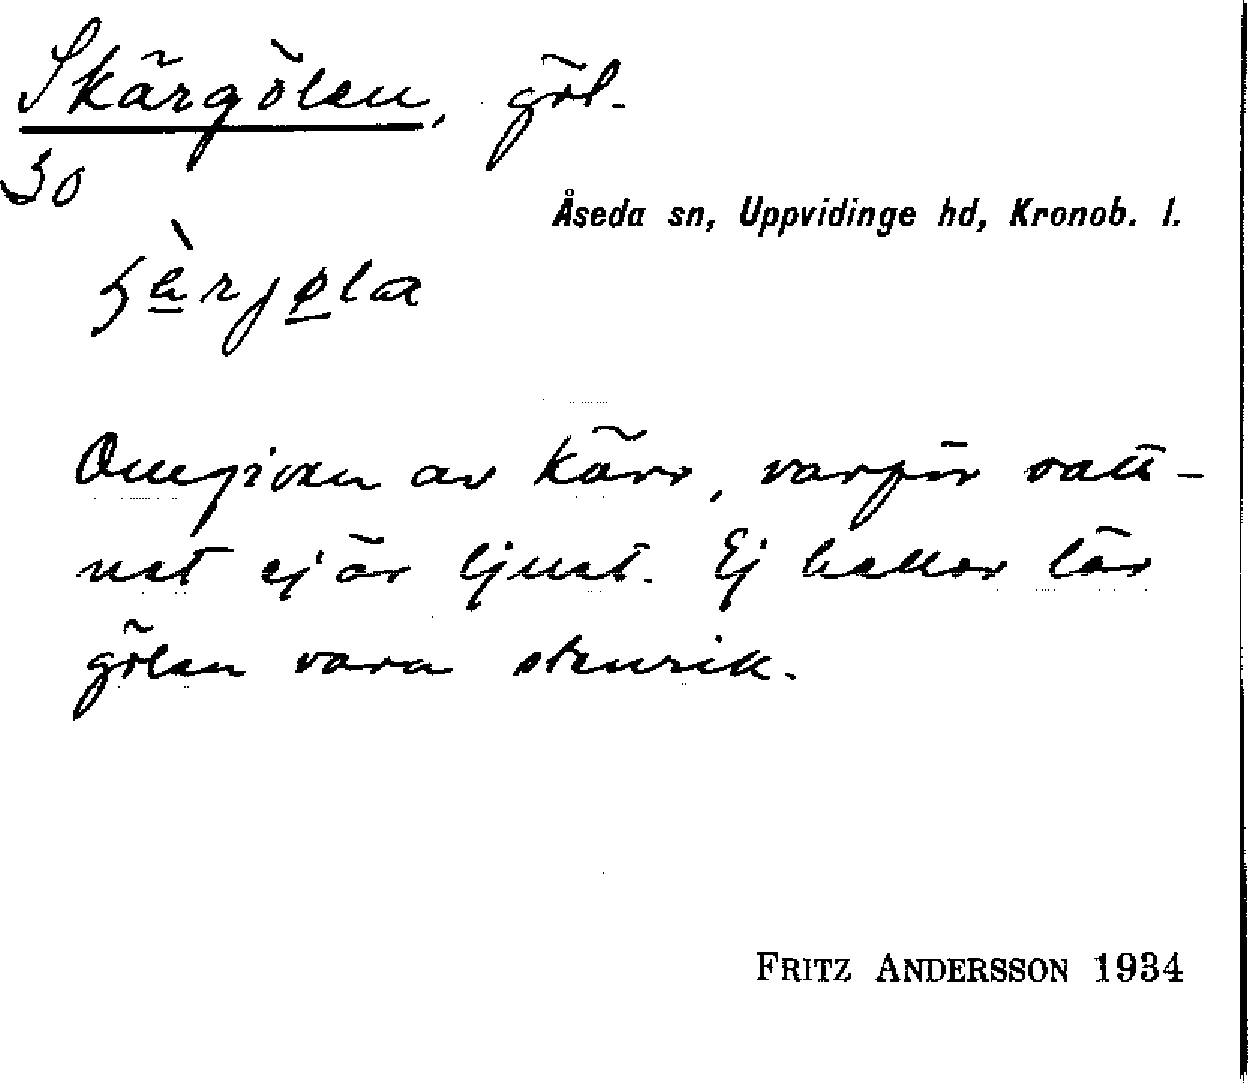 Skärgölen, göl.
30
Åseda sn, Uppvidinge hd, Kronob. l.
Omgiven av kärr, varför vatt-
net ej är ljust. Ej heller lär
gölen vara stenrik.
FRITZ ANDERSSON 1934